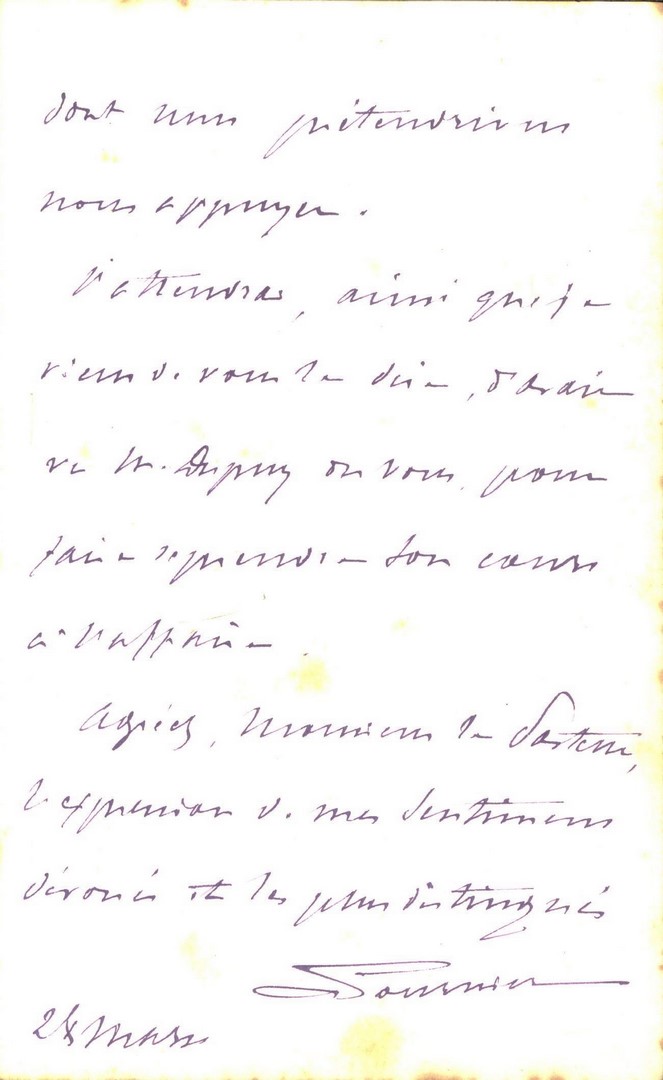 dont nous prétendrions
nous appuyer.
J'attendrai, ainsi que je
viens de vous le dire, d'avoir
vu Mr. Dupuy ou vous, pour
faire reprendre son cours
à l'affaire.
Agréez, Monsieur le Docteur,
l'expression de mes sentimens
dévoués et les plus distingués
Fournier
28 mars